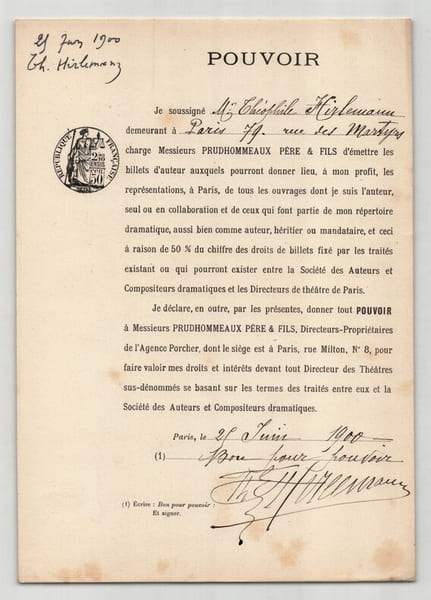 25 Juin 1900
Th. Hirlemann
POUVOIR
Je soussigné Mr Théophile Hirlemann
demeurant à Paris 79. rue des Martyrs
charge Messieurs PRUDHOMMEAUX PÈRE & FILS d'émettre les
billets d'auteur auxquels pourront donner lieu, à mon profit, les
représentations, à Paris, de tous les ouvrages dont je suis l'auteur,
seul ou en collaboration et de ceux qui font partie de mon répertoire
dramatique, aussi bien comme auteur, héritier ou mandataire, et ceci
à raison de 50 % du chiffre des droits de billets fixé par les traités
existant ou qui pourront exister entre la Société des Auteurs et
Compositeurs dramatiques et les Directeurs de théâtre de Paris.
Je déclare, en outre, par les présentes, donner tout POUVOIR
à Messieurs PRUDHOMMEAUX PÈRE & FILS, Directeurs-Propriétaires
de l'Agence Porcher, dont le siège est à Paris, rue Milton, N° 8, pour
faire valoir mes droits et intérêts devant tout Directeur des Théâtres
sus-dénommés se basant sur les termes des traités entre eux et la
Société des Auteurs et Compositeurs dramatiques.
Paris, le 25 Juin 1900
(1) Bon pour pouvoir
Th Hirlemann
(1) Ecrire : Bon pour pouvoir :
Et signer.
RÉPUBLIQUE FRANÇAISE
50